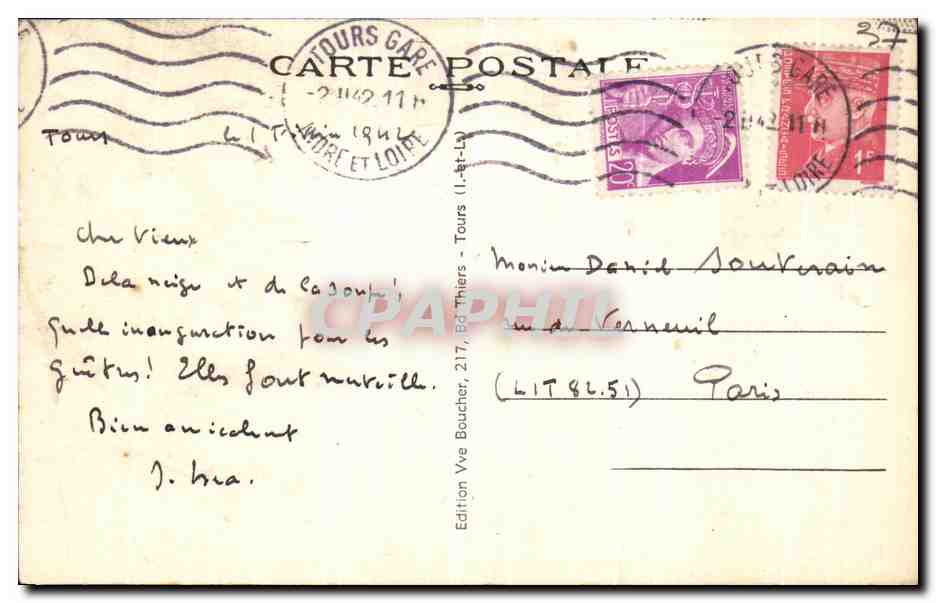 37
CARTE POSTALE
TOURS GARE
-2 II 42 11H
INDRE ET LOIRE
TOURS GARE
LOIRE
POSTES
20
Tours le 1 1942
Cher Vieux
De la neige et de la soupe!,
Quelle inauguration pour les
guêtres! Elles font merveille.
Bien amicalement
Monsieur Daniel Souverain
rue de Verneuil
(LIT 82.51) Paris
Edition Vve Boucher, 217, Bd Thiers - Tours (I.-et-L.)
CPAPHIL